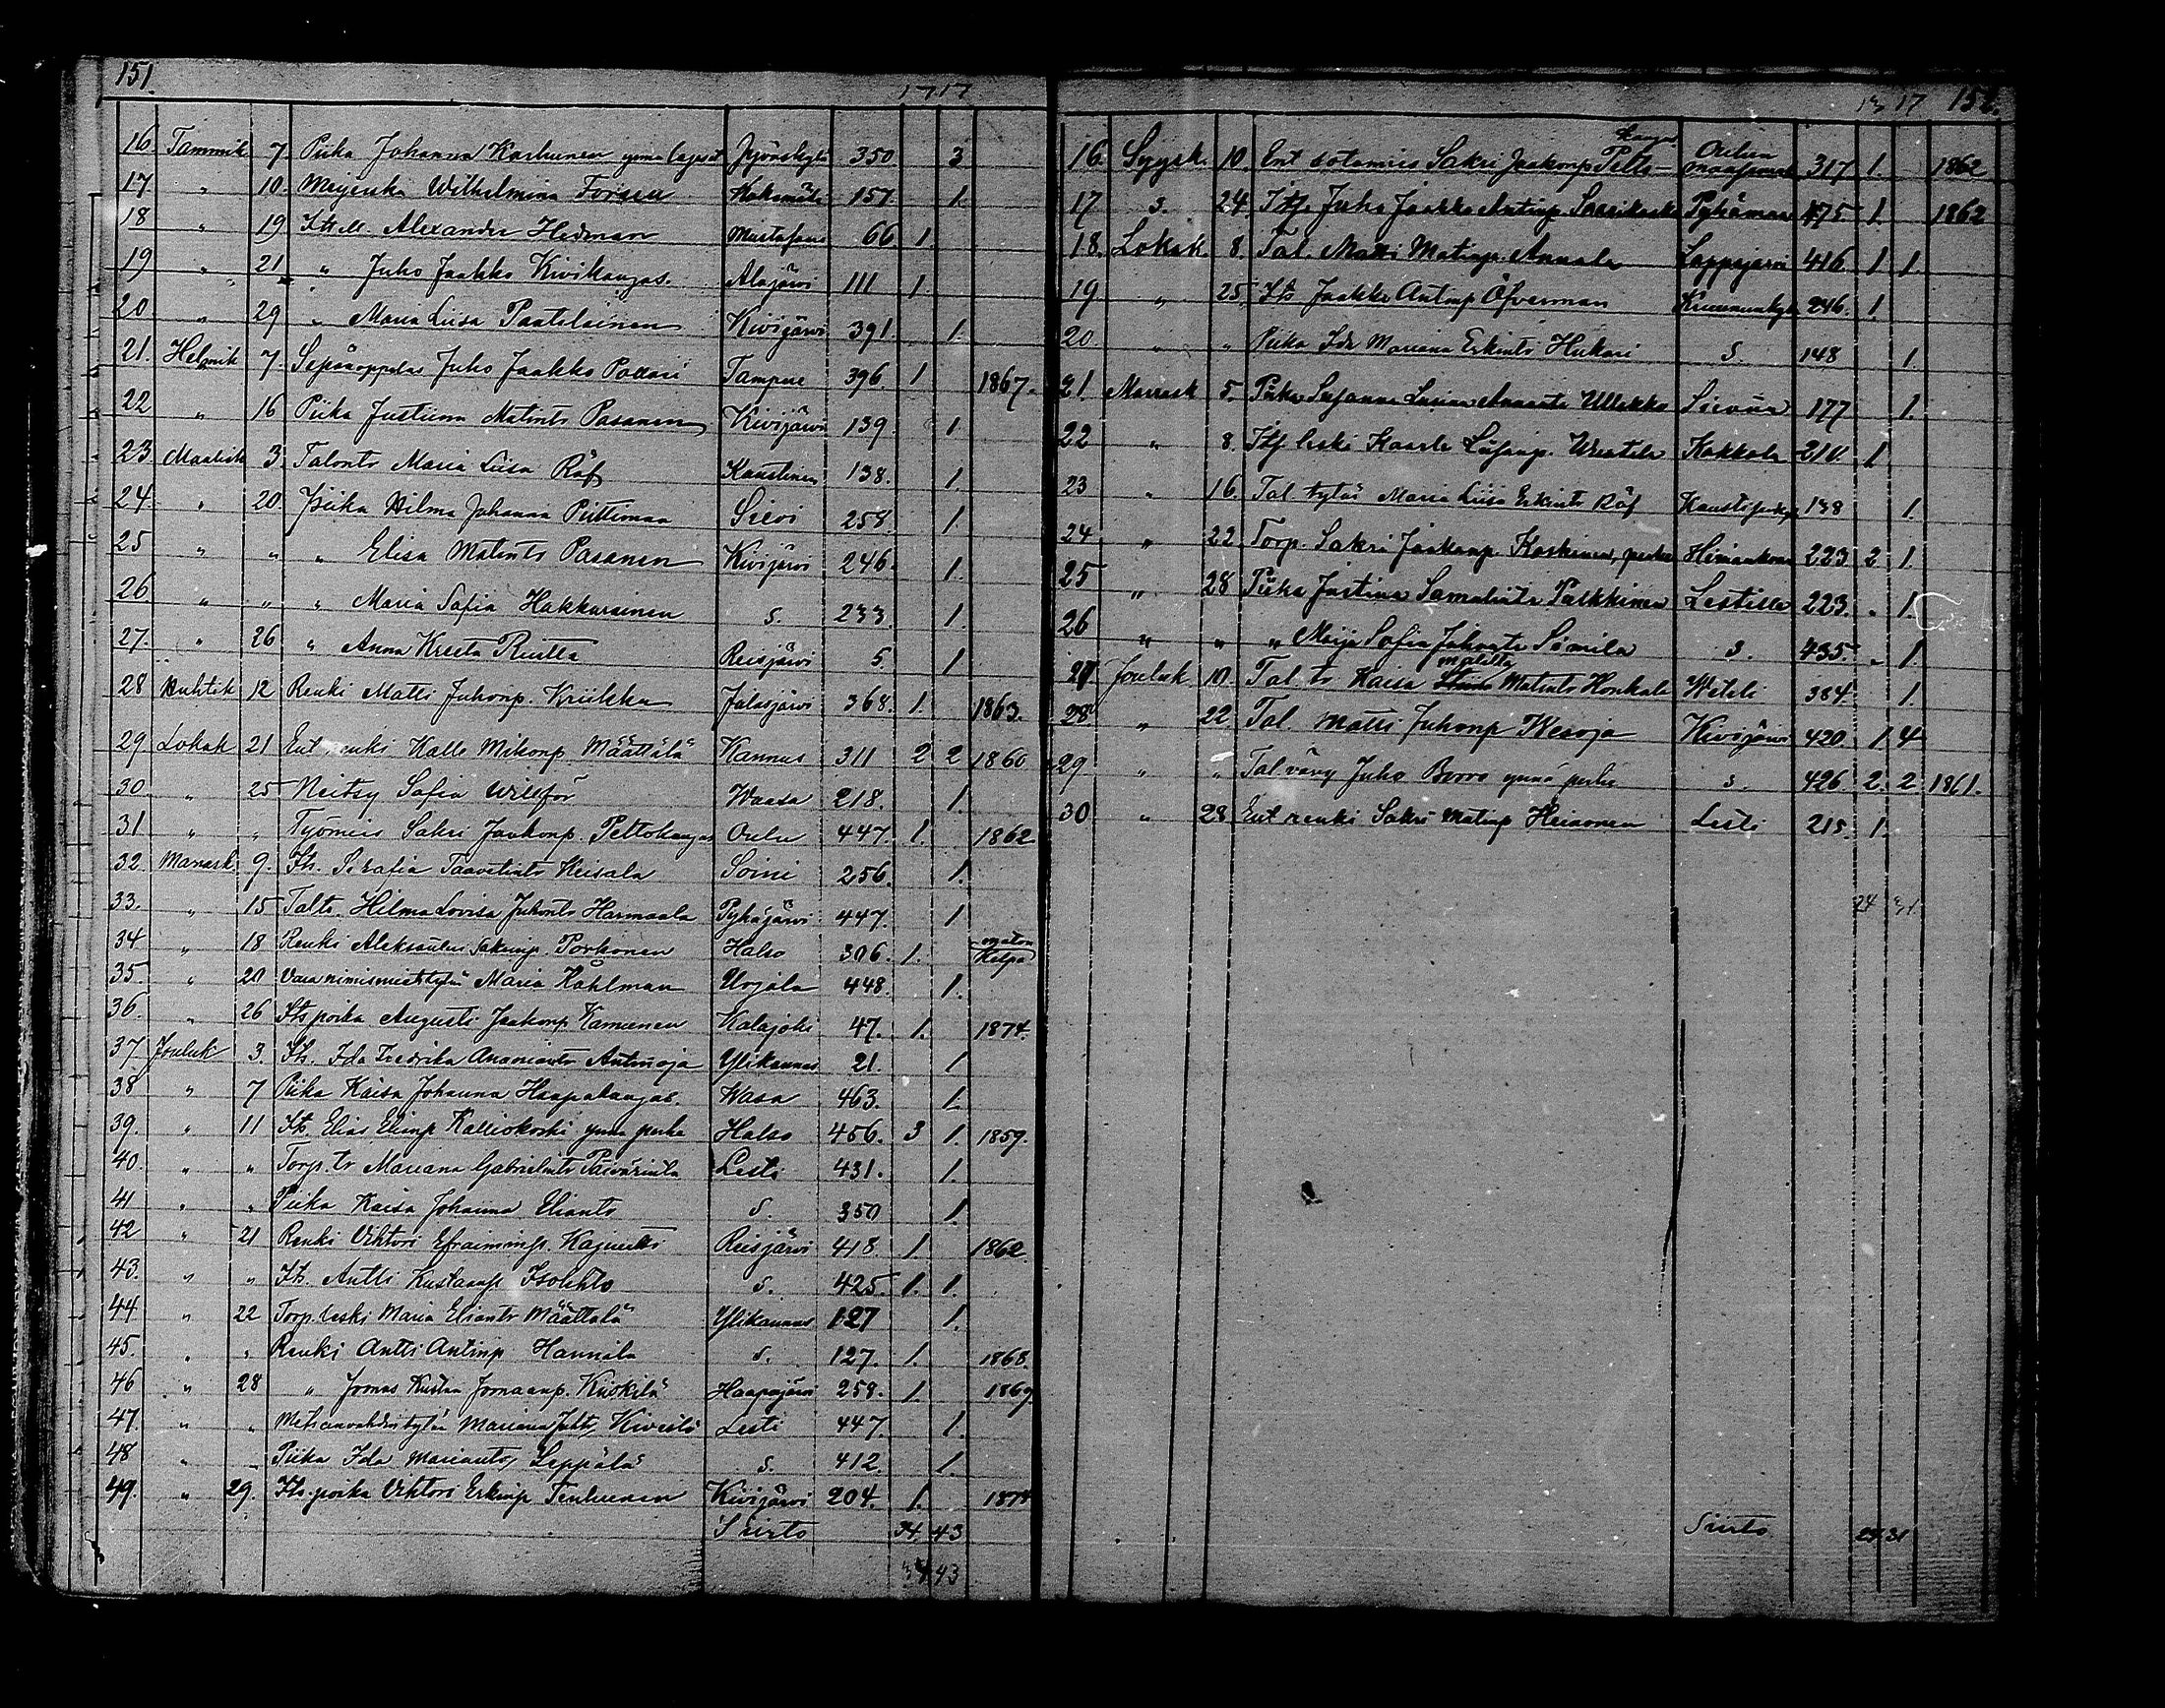 151.
17 17
16 Tammik 7 Piika Johanna Karhunen ynnä lapset 350 3
17 " 10. Meijerska Wilhelmina 157 1.
18 " 19 Its M. Alexander Hedman Mustasaari 66 1.
19 " 21 " Juho Jaakko Kivikangas. Alajärvi 111 1
20 " 29 " Maria Liisa Paatelainen Kivijärvi 391 1.
21. Helmik 7. Sepänoppilas Juho Jaakko Tampere 396. 1 1867.
22 " 16 Piika Justiina Matints Pasanen Kivijärvi 139. 1
23 Maalisk 3. Talonts Maria Liisa Räf Kaustinen 138. 1.
24 " 20. Piika Hilma Johanna Puttimaa Sievi 258. 1.
25 " " " Elisa Matints Pasanen Kivijärvi 246. 1.
26 " " " Maria Sofia Hakkarainen s. 233 1.
27. " 26 " Anna Kreeta Reisjärvi 5. 1
28 Huhtik 12 Renki Matti Juhonp. Kriikku Jalasjärvi 368. 1. 1863.
29 Lokak 21 Ent renki Kalle Mikonp Määttälä Kannus 311 2 2 1860
30. " 25 Neitsy Sofia Waasa 218. 1.
31 " " Työmies Sakri Jaakonp. Peltokangas Oulu 447. 1. 1862.
32. Marrask. 9. Its. Serafia Taavetints Keisala Soini 256. 1.
33. " 15 Talts. Hilma Lovisa Juhonts Harmaala Pyhäjärvi 447. 1
34 " 18 Renki Aleksanteri Sakrinp. Porkonen Halso 306. 1.
35. " 20 Varanimismiehentytär Maria Kåhlman Urjala 448. 1.
36. " 26 Its poika Augusti Jaakonp Kamunen Kalajoki 47. 1. 1874.
37. Jouluk 3. Its. Ida Fredrika Ananiants Antinoja Ylikannus 21. 1
38 " 7 Piika Kaisa Johanna Haapakangas. Wasa 463. 1.
39. " 11 Its. Elias Eliinp Kalliokoski ynnä perhe Halso 456. 3 1. 1859.
40. " " Torp. tr Mariana Gabrielints Päivärinta Lesti 431. 1.
41 " " Piika Kaisa Johanna Eliants s. 350 1.
42 " 21 Renki Vihtori Efraiminp. Reisjärvi 418. 1. 1862
43. " " Its. Antti Kustaanp. Isolehto s. 425. 1. 1.
44 " 22 Torp. leski Maria Eliants Määttälä Ylikannus 127 1.
45. " " Renki Antti Antinp Hannila s. 127. 1. 1868.
46 " 28 " Joonas Kustaa Joonaanp. Kiiskilä Haapajärvi 259. 1. 1869
47. " " Metsänvahdintytär Mariana Kivestö Lesti 447. 1.
48 " " Piika Ida Mariants, Leppälä s. 412. 1.
49. " 29. Its. poika Vihtori Erkinp Tenhunen Kivijärvi 204. 1.
Siirto 34. 43
34 43
17 152.
16 Syysk. 10. Ent sotamies Sakri Jaakonp Peltokangas Oulun 317. 1. 1862
17 s. 24 Its. Juho Jaakko Antinp. 475 1. 1862
18. Lokak. 8. Tal. Matti Matinp. Annala Lappajärvi 416. 1 1
19 " 25 Its Jaakko Antinp Öfverman Kruununkylä 246. 1.
20 " " Piika Ida Mariana Erkints Hukari s. 148 1.
21. Marrask 5. Piika Susanna Ullakko Sievin 177 1.
22 " 8. Its leski Kaarle Kokkola 1
23 " 16. Tal. tytär Maria Liisa Erkints Räf 138 1.
24 " 22 Torp. Sakri Jaakonp. Koskinen, perhe Himankaan 223. 2 1.
25 " 28 Piika Justina Samulints Pulkkinen Lestille 223. " 1.
26 " " " Maija Sofia Juhonts Simila s. 435. " 1.
27 Jouluk 10. Tal. tr Kaisa Matilda Matints Honkala Wetili 384. 1.
28 " 22 Tal. Matti Juhonp Kesoja Kivijärvi 420. 1 4
29 " " Tal vävy Juho Borro ynnä perhe s. 426 2. 2. 1861.
30 " 28 Ent renki Sakri Matinp Heinonen Lesti 215. 1.
24 31
Siirto 24 31